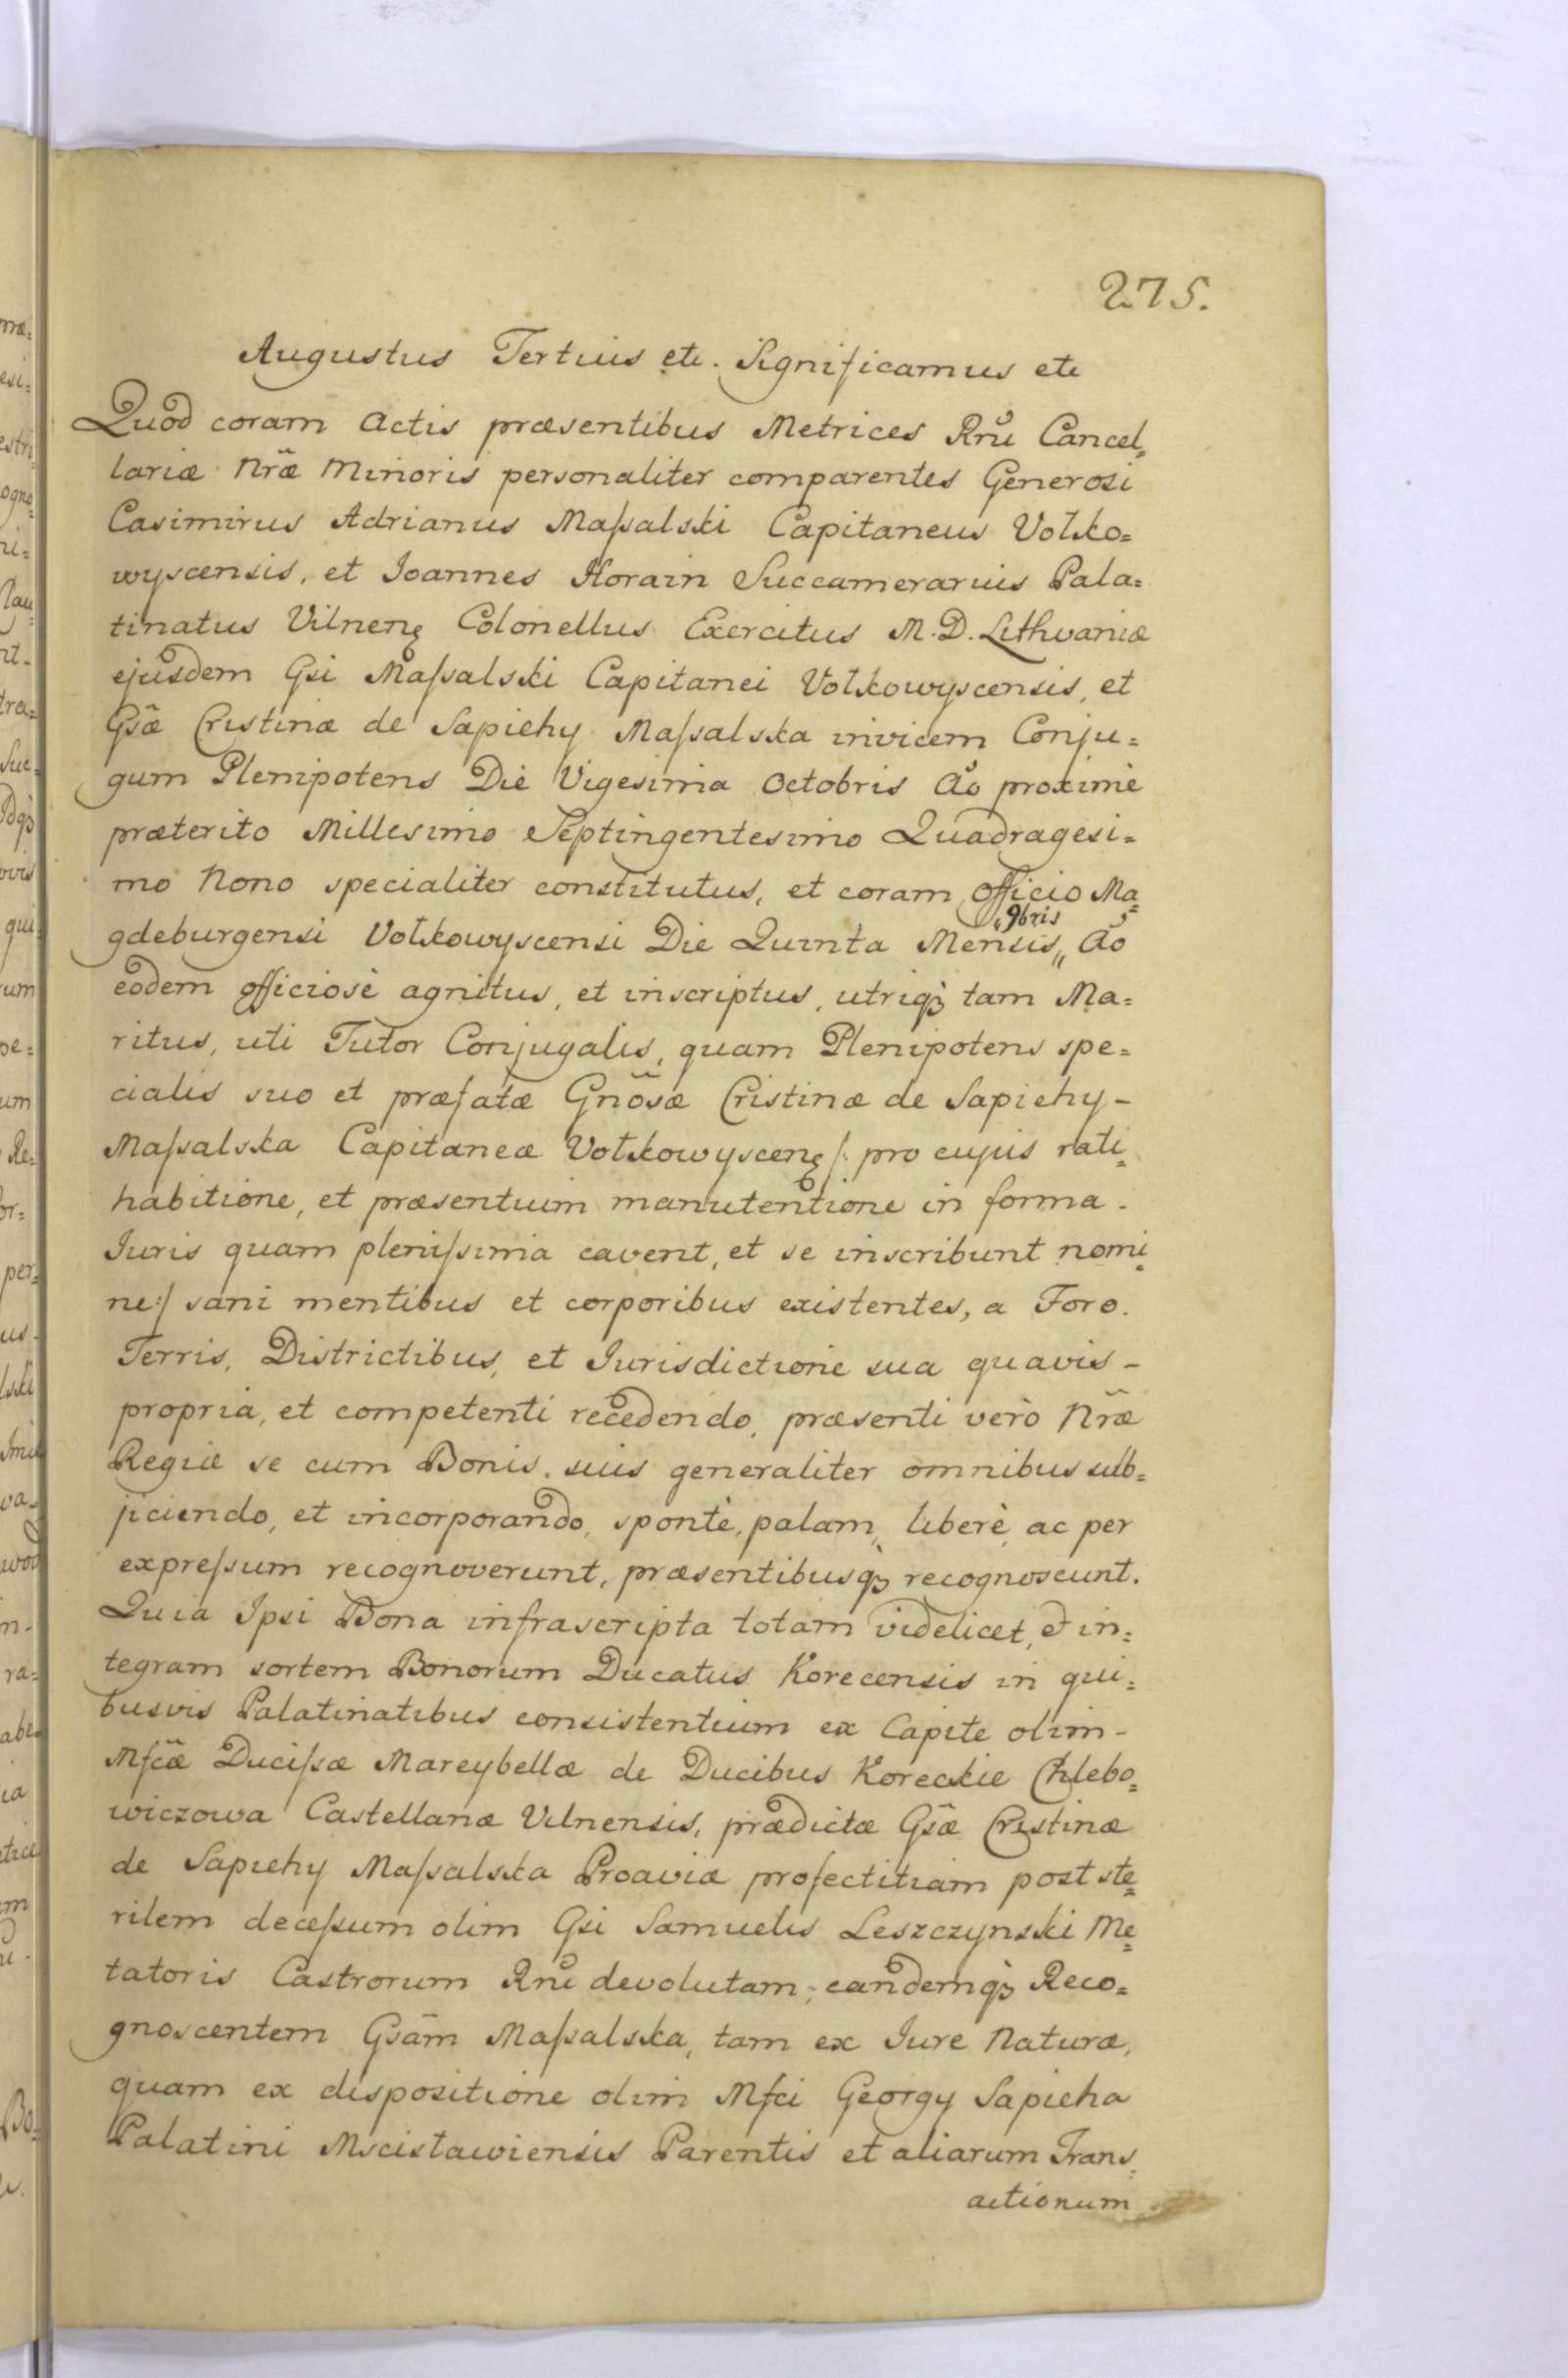 275.
Augustus Tertius etc. Significamus etc
Quod coram Actis præsentibus Metrices Rnũ Cancel=
lariæ Nræ̃ Minoris personaliter comparentes Generosi
Casimirus Adrianus Maſsalski Capitaneus Wołko=
wyscensis, et Joannes Horain Succamerarius Pala=
tinatus Vilnenę Colonellus Exercitus M. D. Lithvaniæ
ejusdem Gsi Maſsalski Capitanei Wołkowyscensis, et
Gsæ̃ Cristinæ de Sapiehy Maſsalska invicem Conju=
gum Plenipotens Die Vigesima Octobris Aõ proximè
præterito Millesimo Septingentesimo Quadragesi=
mo Nono specialiter constitutus, et coram Officio Ma=
gdeburgensi Wołkowyscensi Die Quinta Mensis 9bris Aõ
eodem officiosè agnitus, et inscriptus, utriqȝ tam Ma=
ritus, uti Tutor Conjugalis, quam Plenipotens spe=
cialis suo et præfatæ Gnõsæ Cristinæ de Sapiehy -
Maſsalska Capitaneæ Wołkowyscenę /: pro cujus rati=
habitione, et præsentium manutentione in forma -
Juris quam pleniſsima cavent, et se inscribunt nomi=
ne :/ sani mentibus et corporibus existentes, a Foro.
Terris, Districtibus, et Jurisdictione sua quavis -
propria, et competenti recedendo, præsenti verò Nræ̃
Regiæ se cum Bonis suis generaliter omnibus sub=
jiciendo, et incorporando, spontè, palam, liberè, ac per
expreſsum recognoverunt, præsentibusqȝ recognoscunt.
Quia Ipsi Bona infrascripta totam videlicet, et in=
tegram sortem Bonorum Ducatus Korecensis in qui=
busvis Palatinatibus consistentium ex Capite olim -
Mfcæ̃ Duciſsæ Mareybellæ de Ducibus Koreckie Chlebo=
wiczowa Castellanæ Vilnensis, prædictæ Gsæ̃ Cristinæ
de Sapiehy Maſsalska Proaviæ profectitiam post ste=
rilem deceſsum olim Gsi Samuelis Leszczynski Me=
tatoris Castrorum Rnĩ devolutam, eandemqȝ Reco=
gnoscentem Gsãm Maſsalska, tam ex Jure Naturæ,
quam ex dispositione olim Mfci Georgy Sapieha
Palatini Mscisławiensis Parentis et aliarum Trans=
actionum